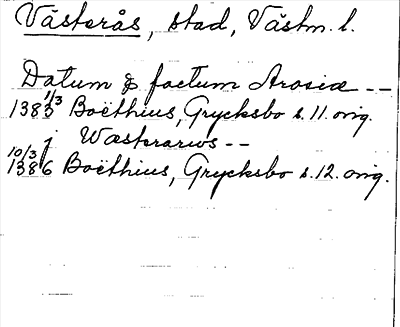 Västerås, stad, Västm. l.
Datum & factum Arosiæ --
1/3
1383 Boëthius, Grycksbo s. 11. orig.
j Wæsterarws --
10/3
1386 Boëthius, Grycksbo s. 12. orig.